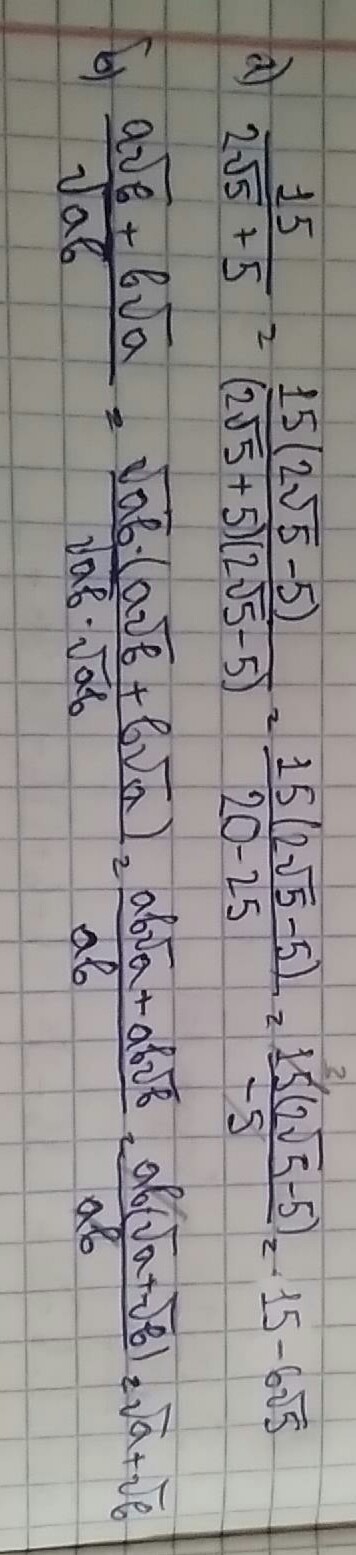 а) 15/(2√5 + 5) = 15(2√5 - 5)/((2√5 + 5)(2√5 - 5)) = 15(2√5 - 5)/(20 - 25) = 15(2√5 - 5)/(-5) = 15 - 6√5
б) (a√b + b√a)/√ab = √ab · (a√b + b√a)/(√ab · √ab) = (ab√a + ab√b)/ab = ab(√a + √b)/ab = √a + √b